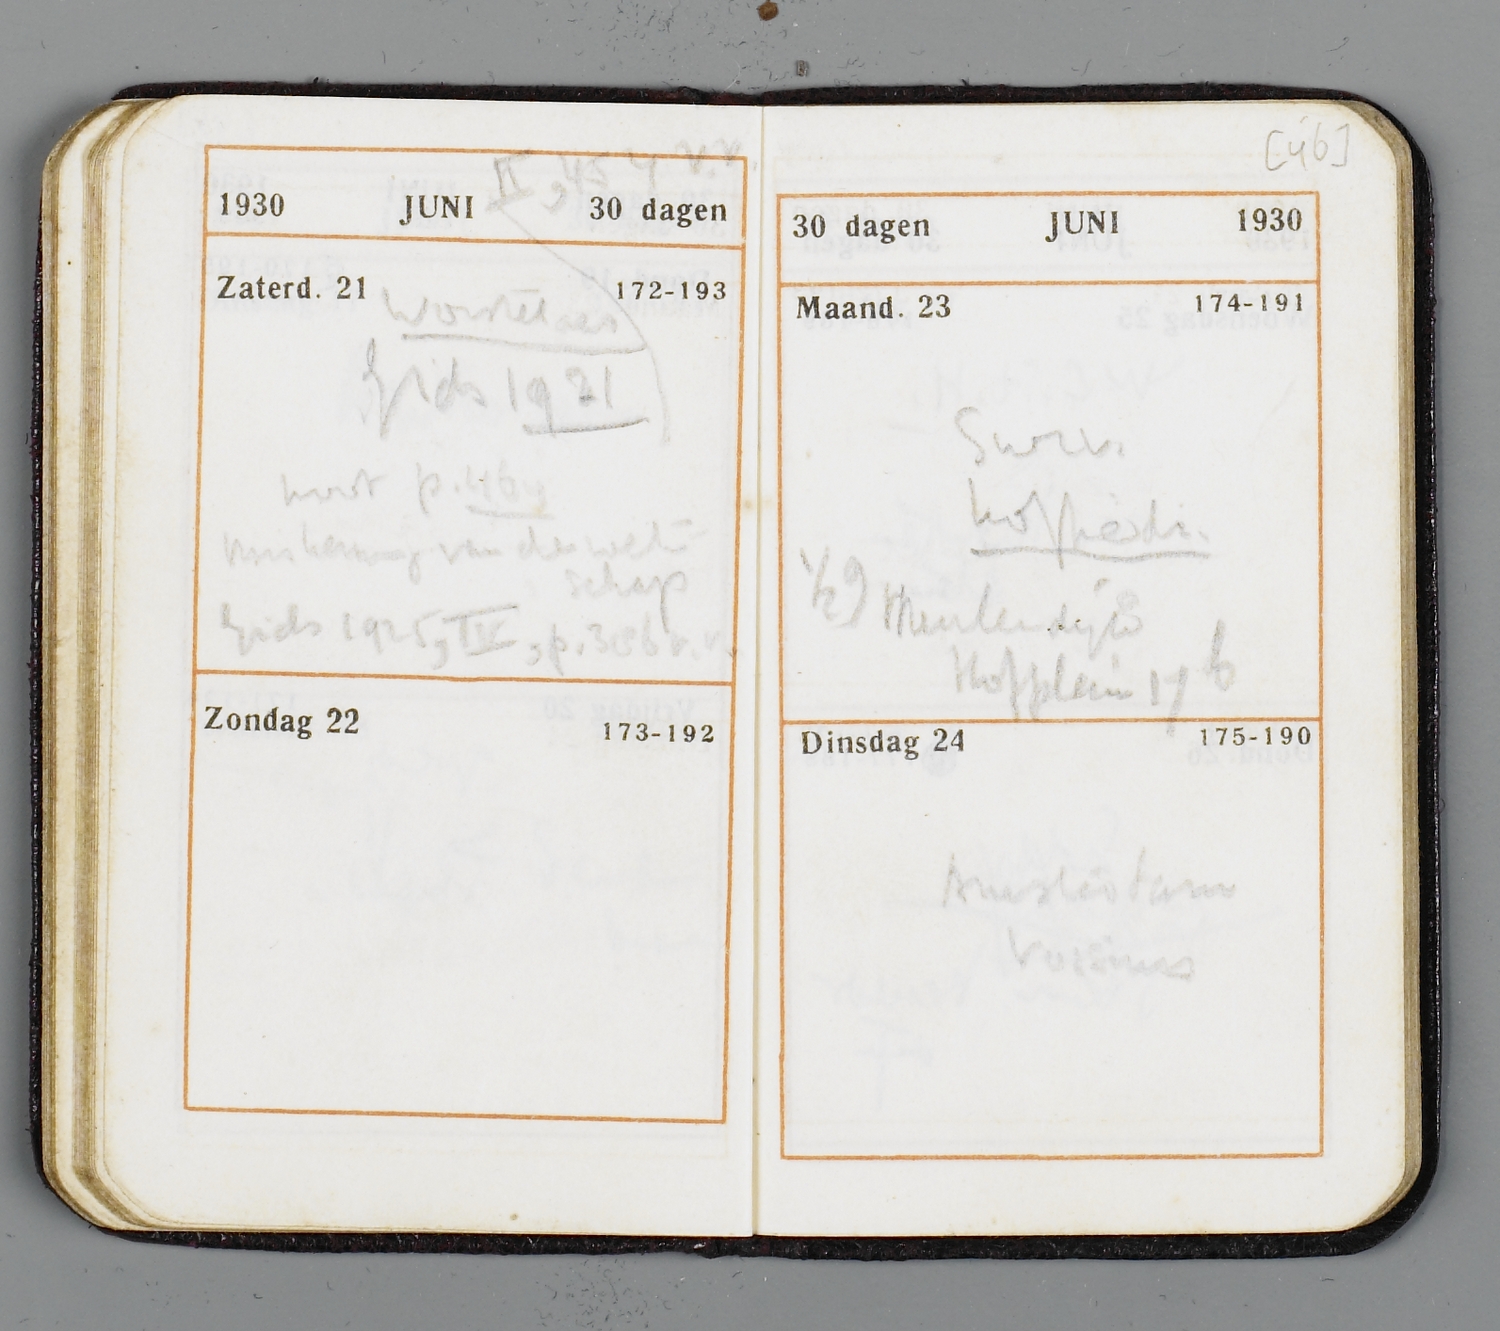 II, 454 v.v.
1930 JUNI 30 dagen
Zaterd. 21 172-193
Worstel
Gids 1921
noot p. 464
van de weten
schap
Gids 1925, IV, p. 386 v.v.
Zondag 22 173-192
[46]
30 dagen JUNI 1930
Maand. 23 174-191
½9 Meulendijks
Hofplein 17 b
Dinsdag 24 175-190
Amsterdam
Vossius